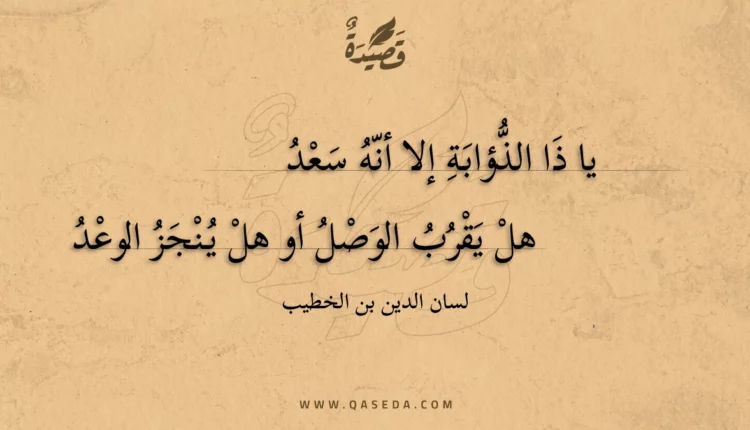 قَصِيدَةٌ
يا ذَا الذُّؤابَةِ إلا أنّهُ سَعْدُ
هلْ يَقْرُبُ الوَصْلُ أو هلْ يُنْجَزُ الوعْدُ
لسان الدين بن الخطيب
WWW.QASEDA.COM